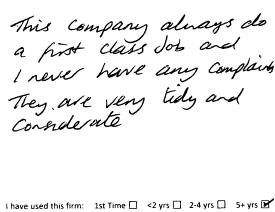 This company always do
a first class Job and
I never have any complaints
They are very tidy and
Considerate
I have used this firm: 1st Time ☐ <2 yrs ☐ 2-4 yrs ☐ 5+ yrs ☑